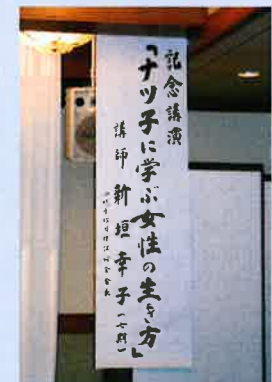 記念講演
「ナツ子に学ぶ女性の生き方」
講師 新垣幸子（七期）